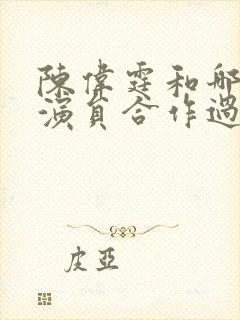 陳偉霆和
演員合作過
皮亞